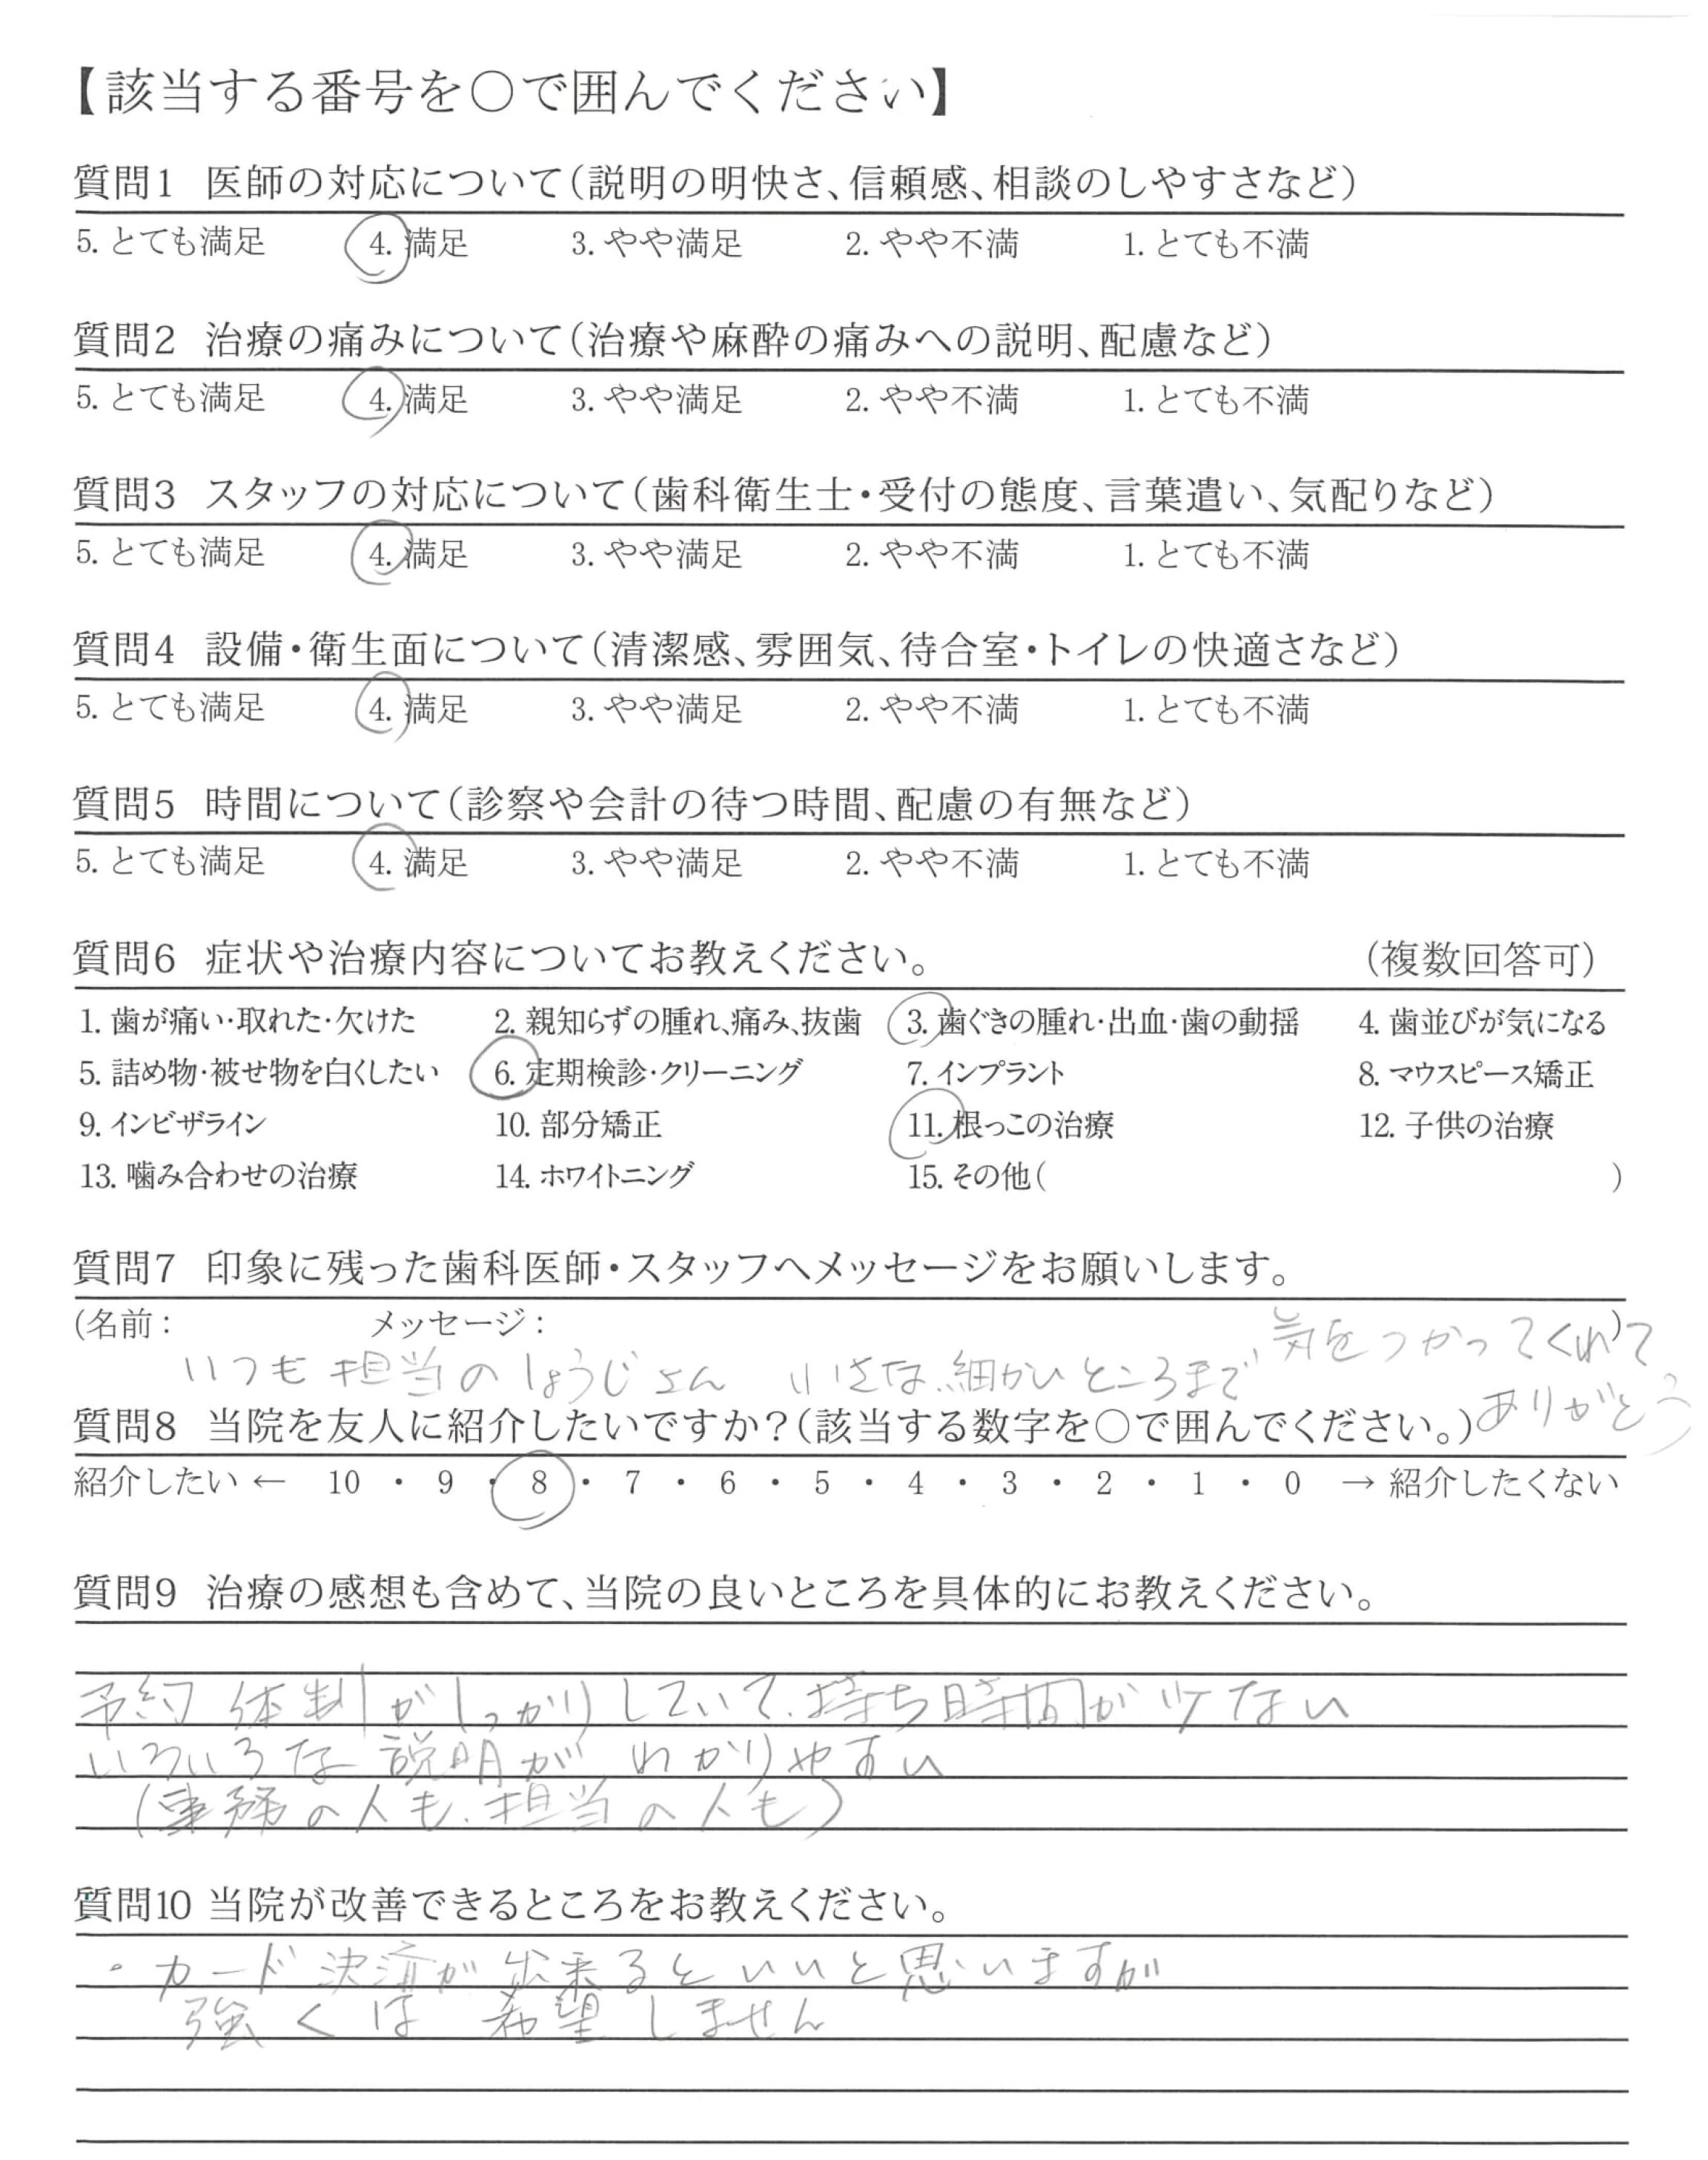 【該当する番号を○で囲んでください】
質問1 医師の対応について(説明の明快さ、信頼感、相談のしやすさなど)
5. とても満足 4. 満足 3. やや満足 2. やや不満 1. とても不満
質問2 治療の痛みについて(治療や麻酔の痛みへの説明、配慮など)
5. とても満足 4. 満足 3. やや満足 2. やや不満 1. とても不満
質問3 スタッフの対応について(歯科衛生士・受付の態度、言葉遣い、気配りなど)
5. とても満足 4. 満足 3. やや満足 2. やや不満 1. とても不満
質問4 設備・衛生面について(清潔感、雰囲気、待合室・トイレの快適さなど)
5. とても満足 4. 満足 3. やや満足 2. やや不満 1. とても不満
質問5 時間について(診察や会計の待つ時間、配慮の有無など)
5. とても満足 4. 満足 3. やや満足 2. やや不満 1. とても不満
質問6 症状や治療内容についてお教えください。 (複数回答可)
1. 歯が痛い・取れた・欠けた 2. 親知らずの腫れ、痛み、抜歯 3. 歯ぐきの腫れ・出血・歯の動揺 4. 歯並びが気になる
5. 詰め物・被せ物を白くしたい 6. 定期検診・クリーニング 7. インプラント 8. マウスピース矯正
9. インビザライン 10. 部分矯正 11. 根っこの治療 12. 子供の治療
13. 噛み合わせの治療 14. ホワイトニング 15. その他( )
質問7 印象に残った歯科医師・スタッフへメッセージをお願いします。
(名前: メッセージ: )
いつも担当の 細かいところまで 気をつかってくれて
ありがとう
質問8 当院を友人に紹介したいですか?(該当する数字を○で囲んでください。)
紹介したい ← 10 ・ 9 ・ 8 ・ 7 ・ 6 ・ 5 ・ 4 ・ 3 ・ 2 ・ 1 ・ 0 → 紹介したくない
質問9 治療の感想も含めて、当院の良いところを具体的にお教えください。
予約体制がしっかりしていて、待ち時間が少ない
いろいろな説明がわかりやすい
(事務の人も、担当の人も)
質問10 当院が改善できるところをお教えください。
・カード決済が出来るといいと思いますが
強くは希望しません